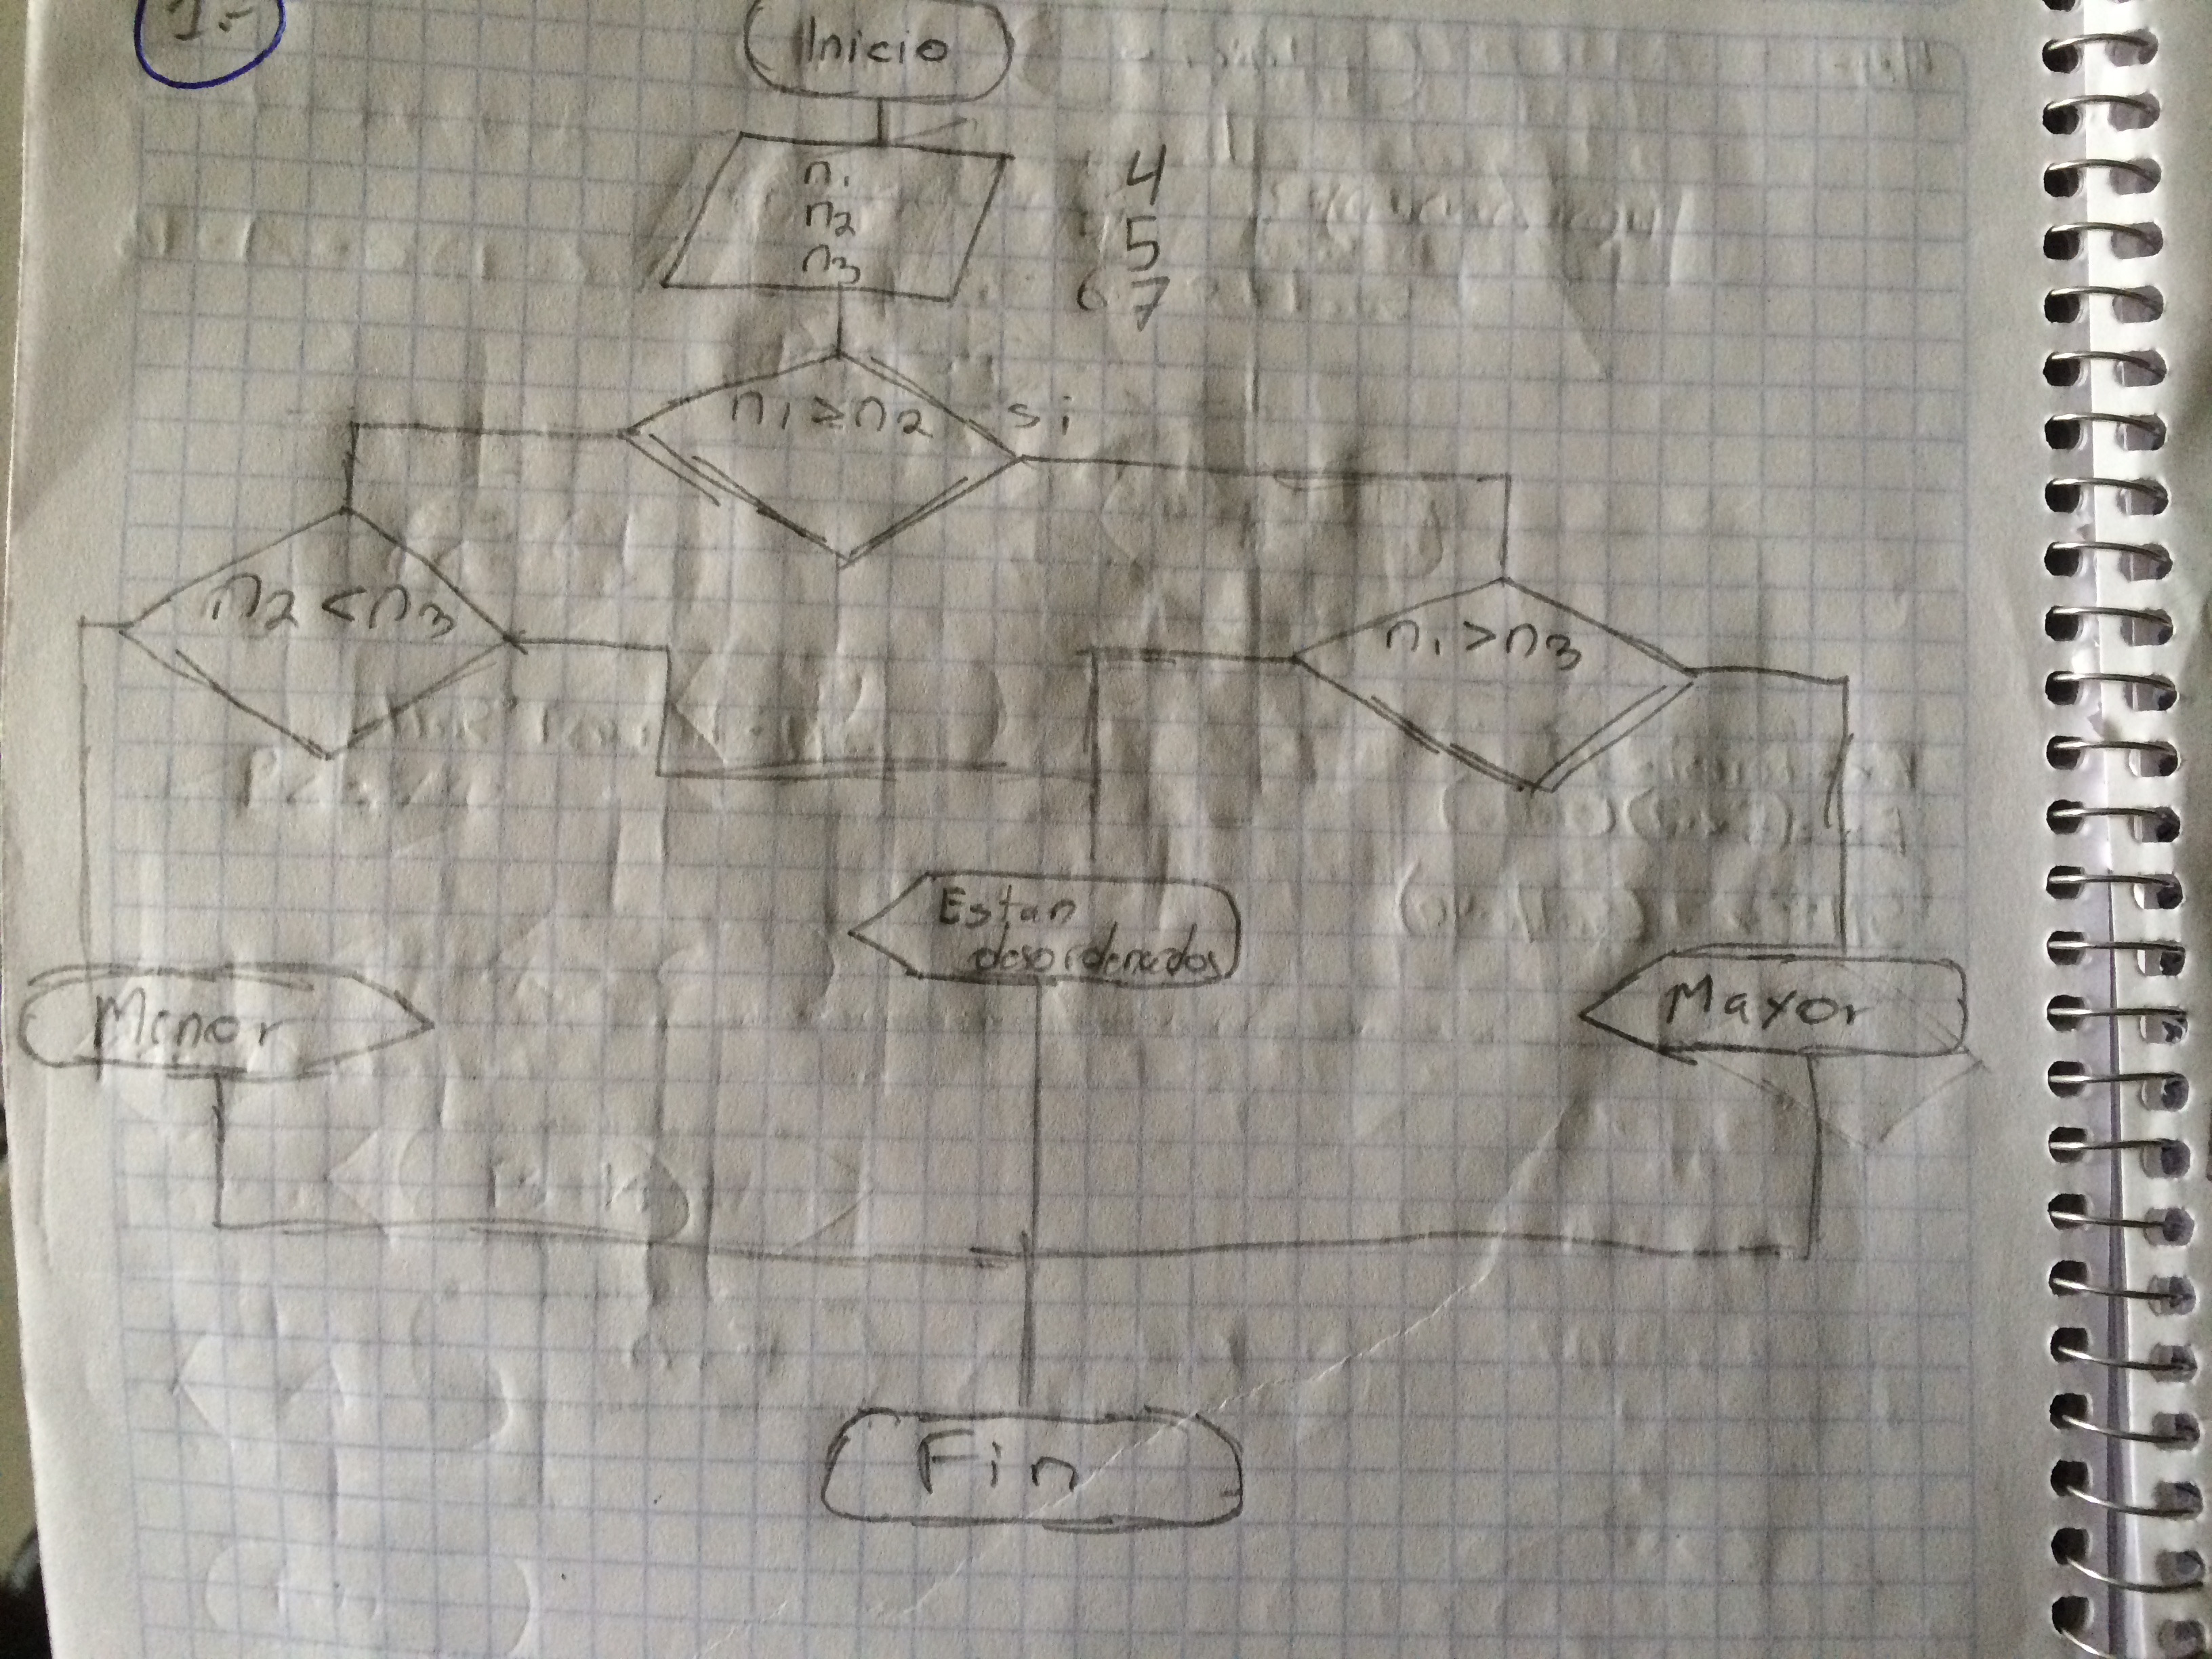 1:-
Inicio
n1
n2
n3
4
5
7
n1 ≥ n2
si
n2 < n3
n1 > n3
Menor
Estan
desordenados
Mayor
Fin